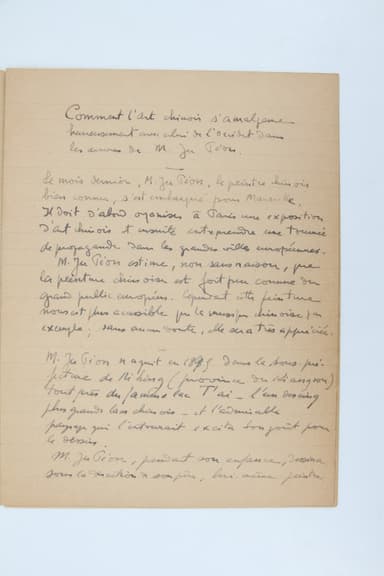 Comment l'Art chinois s'amalgame
heureusement avec celui de l'Occident dans
les œuvres de M. Ju Péon.
Le mois dernier, M. Ju Péon, le peintre chinois
bien connu, s'est embarqué pour Marseille.
Il doit d'abord organiser à Paris une exposition
d'art chinois et ensuite entreprendre une tournée
de propagande dans les grandes villes européennes.
M. Ju Péon estime, non sans raison, que
la peinture chinoise est fort peu connue du
grand public européen. Cependant cette peinture
nous est plus accessible que la musique chinoise, par
exemple; sans aucun doute, elle sera très appréciée.
M. Ju Péon naquit en 1895 dans la sous-pré-
fecture de (province du Kiangsou)
tout près du fameux lac T'ai - l'un des cinq
plus grands lacs chinois - et l'admirable
paysage qui l'entourait excita son goût pour
le dessin.
M. Ju Péon, pendant son enfance, dessina
sous la direction de son père, lui-même peintre,